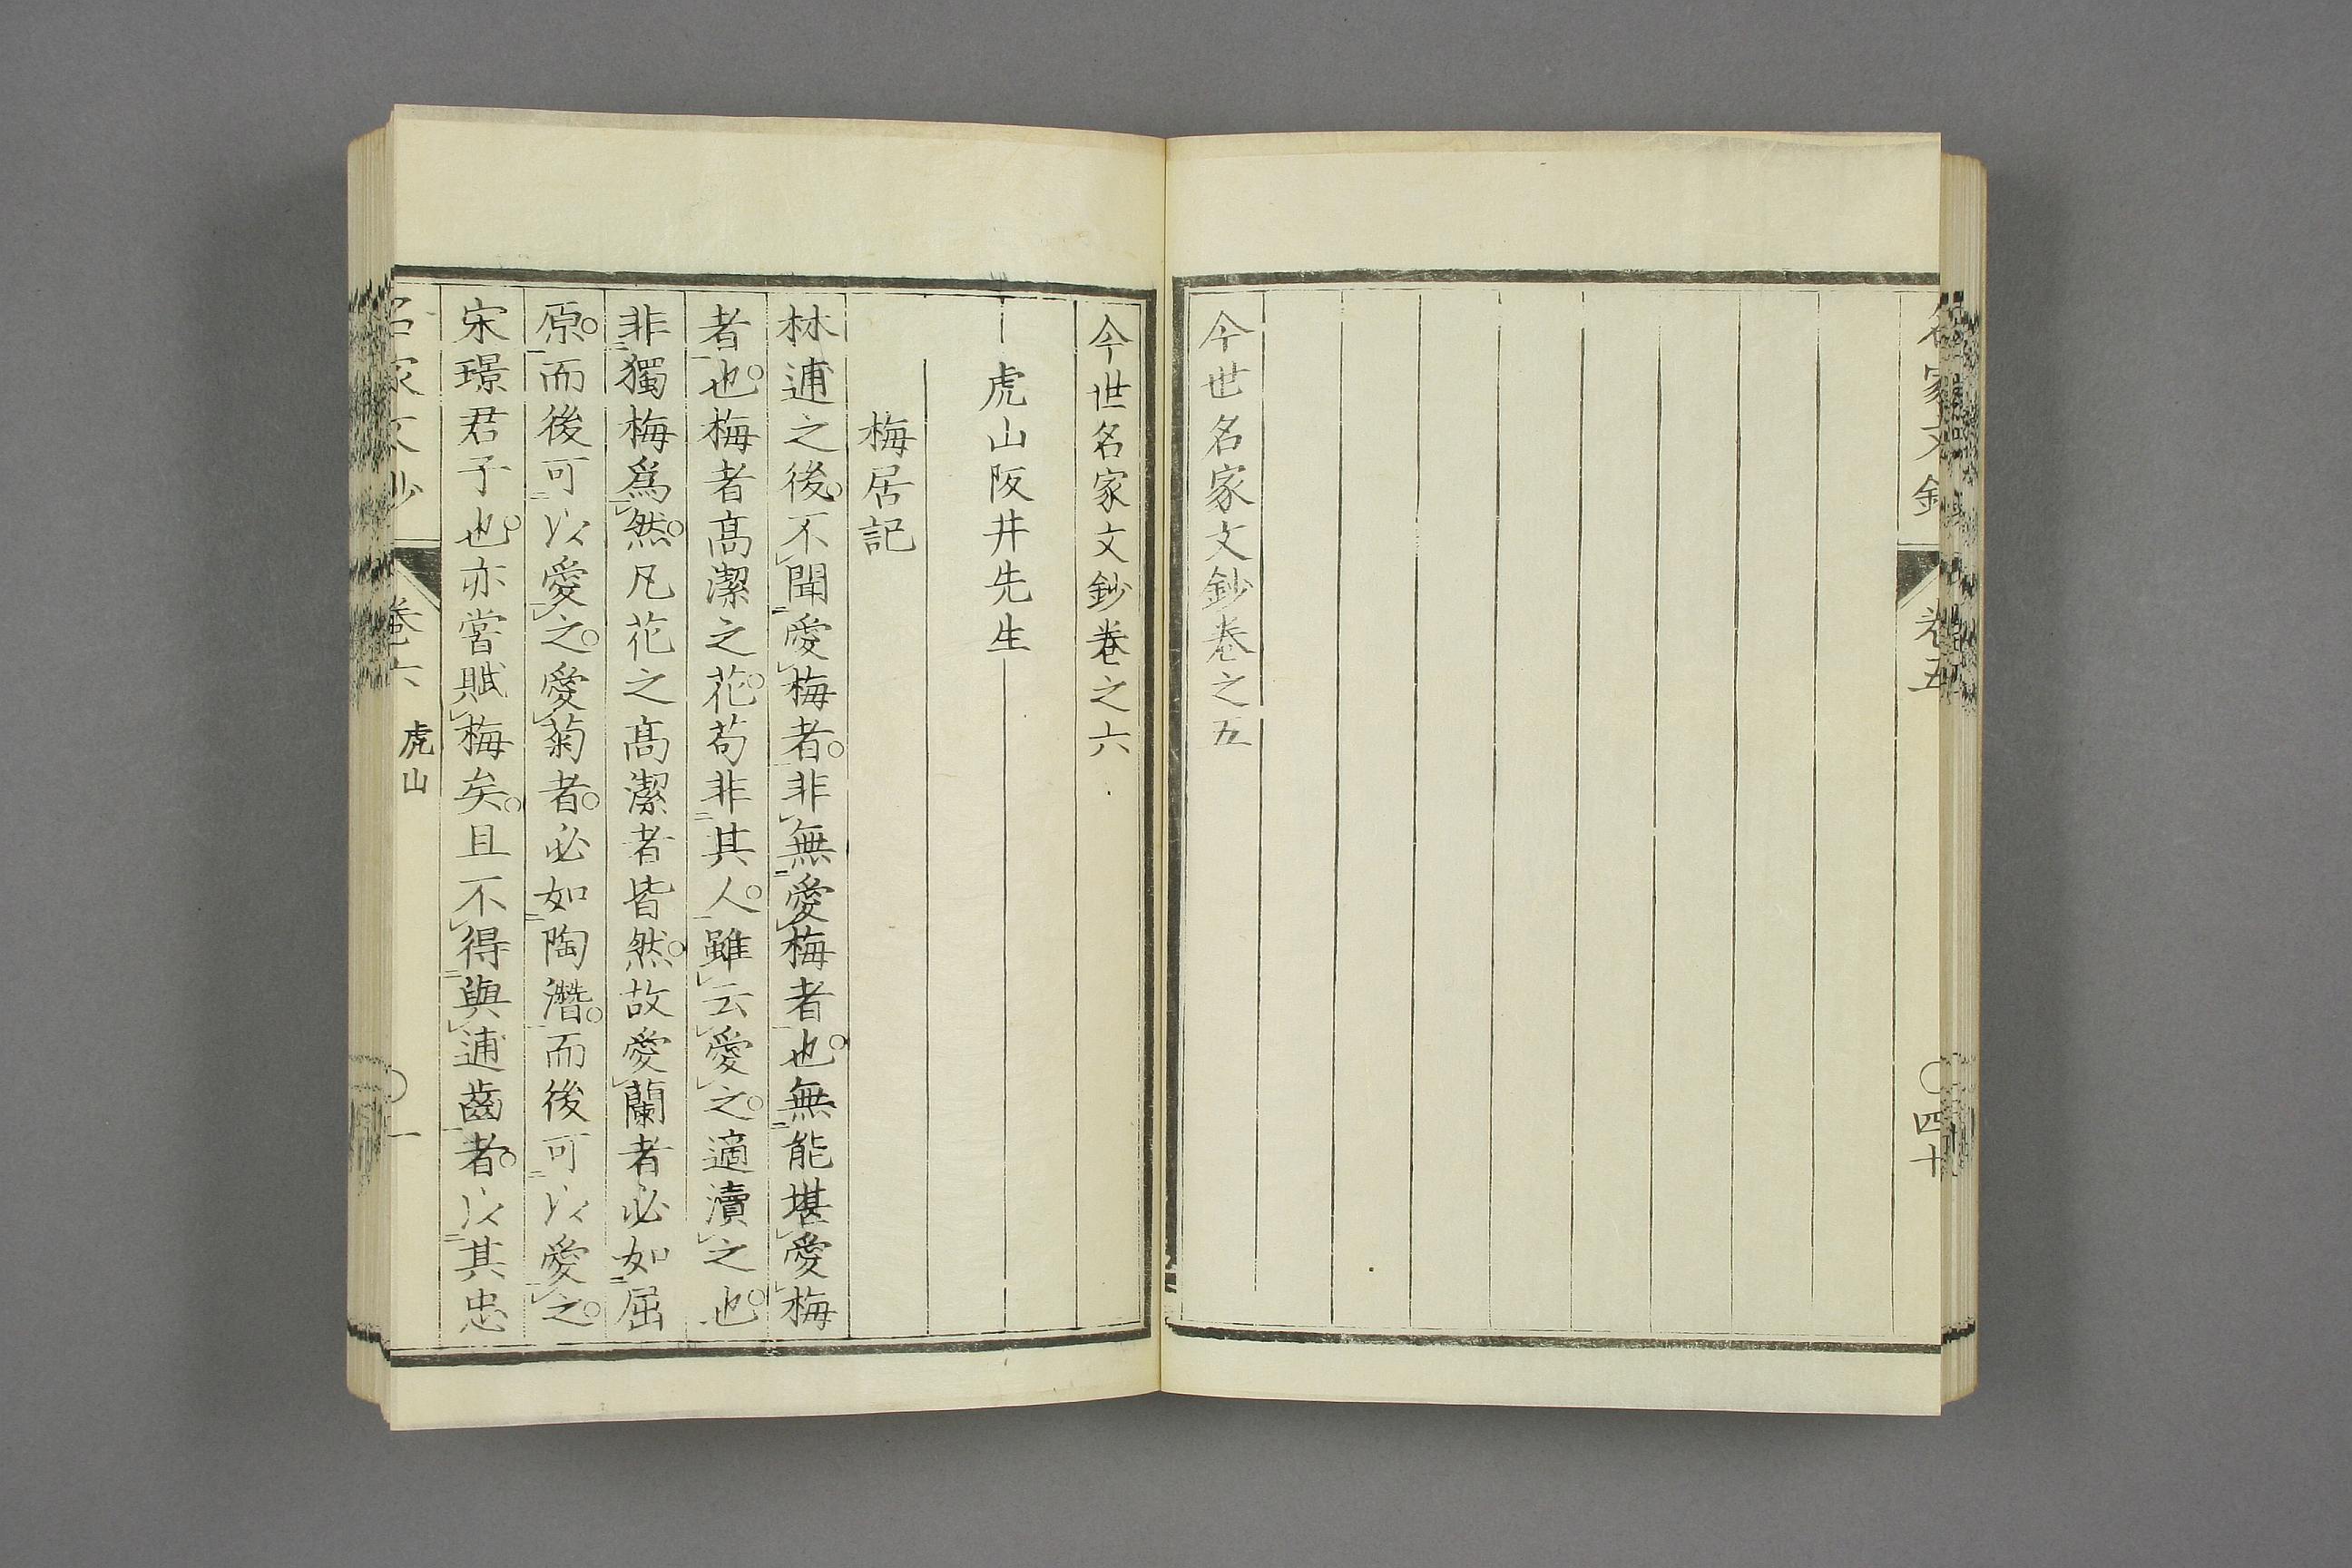 名家文鈔 卷五 ○四十
今世名家文鈔卷之五
今世名家文鈔卷之六
虎山阪井先生
梅居記
林逋之後。不聞愛梅者。非無愛梅者也。無能堪愛梅
者也。梅者高潔之花。苟非其人。雖云愛之。適瀆之也。
非獨梅爲然。凡花之高潔者皆然。故愛蘭者必如屈
原。而後可以愛之。愛菊者。必如陶潛。而後可以愛之。
宋璟君子也。亦嘗賦梅矣。且不得與逋齒者。以其忠
名家文鈔 卷六 虎山 ○一